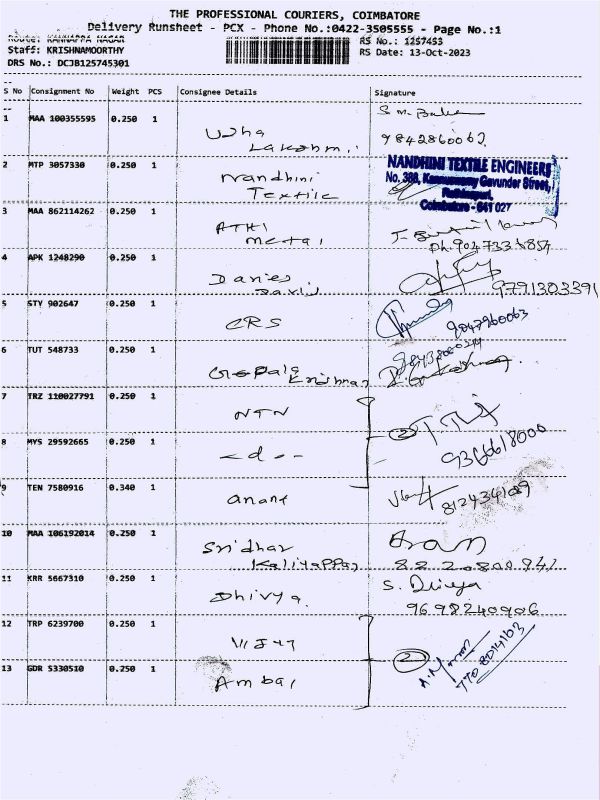 THE PROFESSIONAL COURIERS, COIMBATORE
Delivery Runsheet - PCX - Phone No.:0422-3505555 - Page No.:1
Route: KANNAPPA NAGAR
RS No.: 1257453
Staff: KRISHNAMOORTHY
RS Date: 13-Oct-2023
DRS No.: DCJB125745301
S No Consignment No Weight PCS Consignee Details Signature
1 MAA 100355595 0.250 1 Usha
Lakshmi 9842860062
2 MTP 3057330 0.250 1 Nandhini
Textile
NANDHINI TEXTILE ENGINEERS
No. 388, Kannuswamy Gavunder Street,
Rathinapuri,
Coimbatore - 641 027
3 MAA 862114262 0.250 1 ATHI
Metal
4 APK 1248290 0.250 1 Davies
9791303391
5 STY 902647 0.250 1 CRS 9047960063
6 TUT 548733 0.250 1 Gopala
Krishnan
7 TRZ 110027791 0.250 1 NTN
8 MYS 29592665 0.250 1 -d- 2
9366618000
9 TEN 7580916 0.340 1 anant
10 MAA 106192014 0.250 1 Sridhar
Kaliyappan
11 KRR 5667310 0.250 1 Dhivya S. Divya
9698240906
12 TRP 6239700 0.250 1 Vijay
13 GDR 5330510 0.250 1 Ambal 2